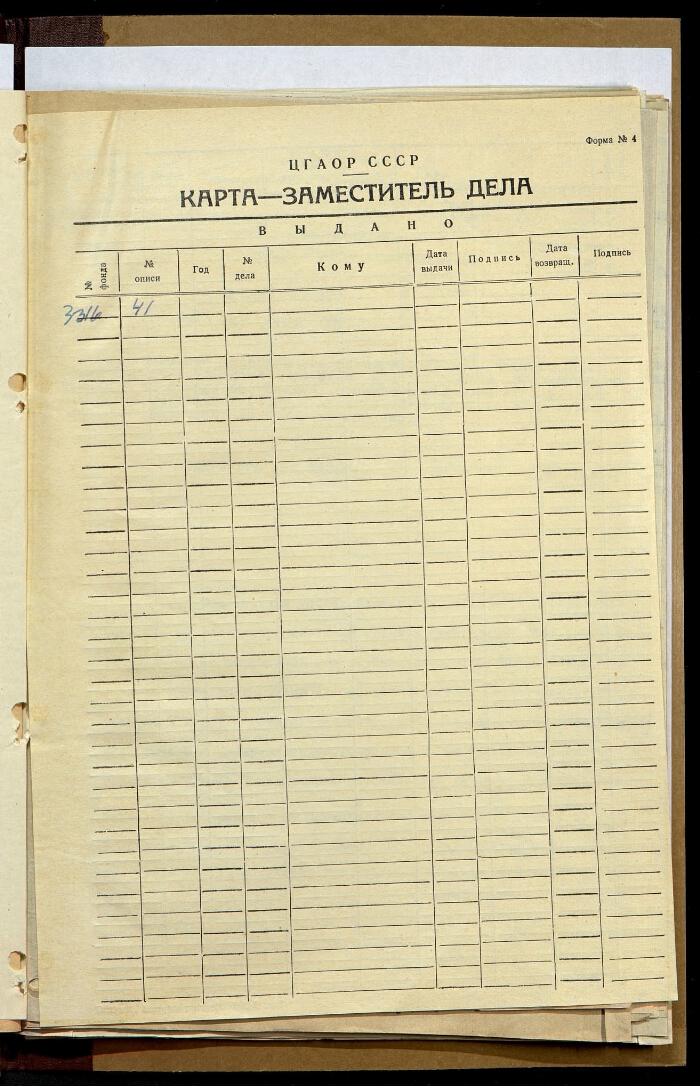 Форма № 4
ЦГАОР СССР
КАРТА—ЗАМЕСТИТЕЛЬ ДЕЛА
ВЫДАНО
№ фонда
№ описи
Год
№ дела
Кому
Дата выдачи
Подпись
Дата возвращ.
Подпись
3316 41